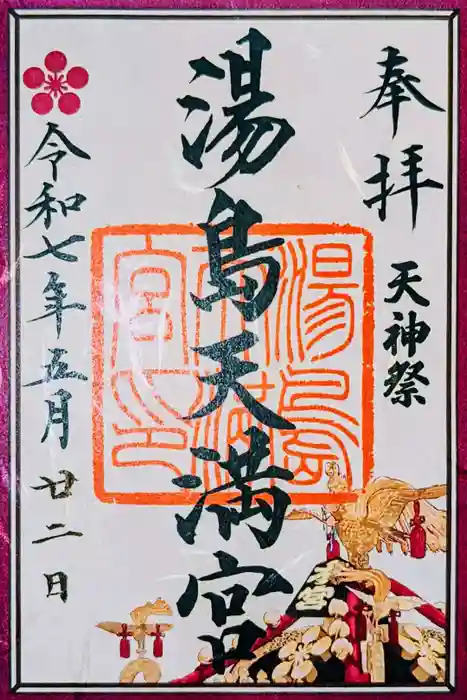 奉拝
天神祭
湯島天満宮
令和七年五月廿二日
湯島
天満
宮印